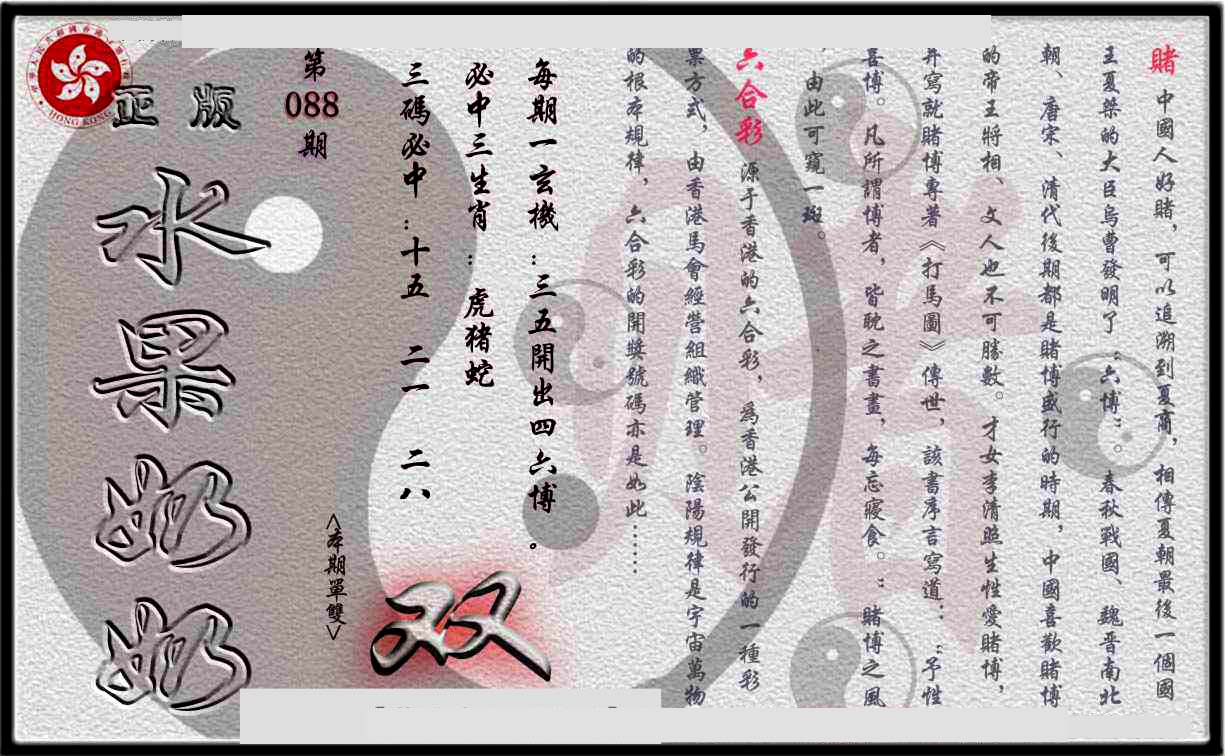 賭 中國人好賭，可以追溯到夏商，相傳夏朝最後一個國
王夏桀的大臣烏曹發明了“六博”。春秋戰國、魏晉南北
朝、唐宋、清代後期都是賭博盛行的時期，中國喜歡賭博
的帝王將相、文人也不可勝數。才女李清照生性愛賭博，
并寫就賭博專著《打馬圖》傳世，該書序言寫道：“予性
喜博。凡所謂博者，皆耽之書畫，每忘寢食。”賭博之風
，由此可窺一斑。
六合彩 源于香港的六合彩，為香港公開發行的一種彩
票方式，由香港馬會經營組織管理。陰陽規律是宇宙萬物
的根本規律，六合彩的開獎號碼亦是如此……
每期一玄機：三五開出四六博。
必中三生肖：虎猪蛇
三碼必中：十五 二一 二八
双
<本期單雙>
第
088
期
正版
水果奶奶
HONG KONG